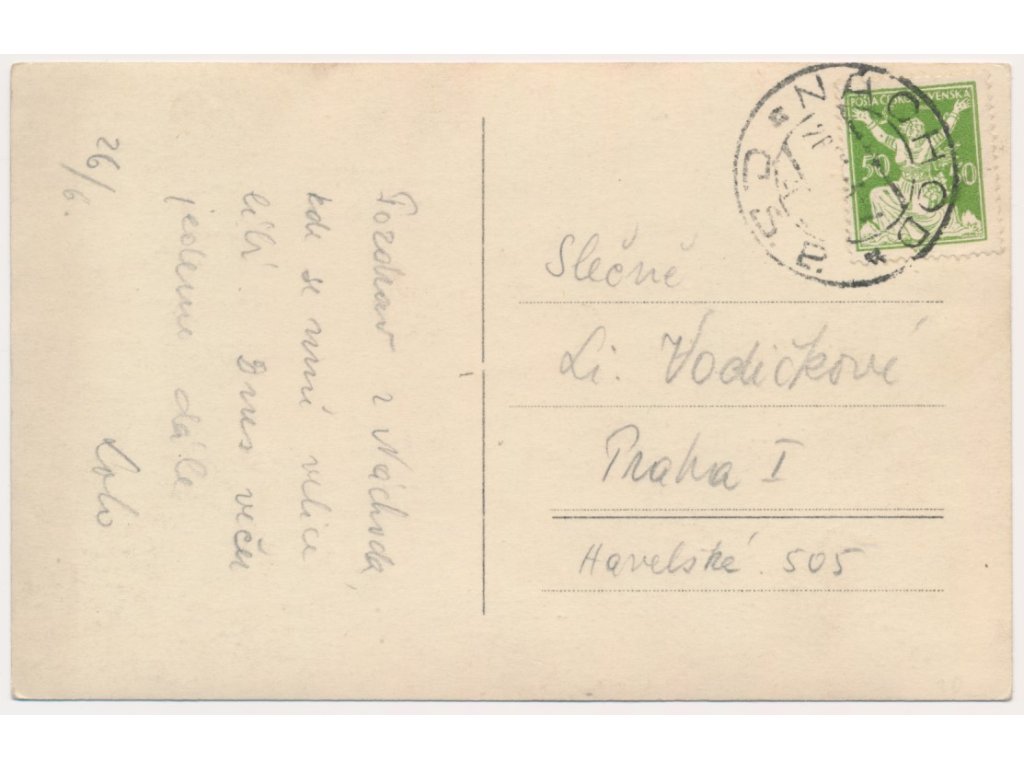 26/6.
Pozdrav z Náchoda,
kde se mi velice
líbí. Dnes večer
jedeme dále
NÁCHOD
POŠTA ČESKOSLOVENSKÁ
50
Slečně
Li. Vodičkové
Praha I
Havelská 505